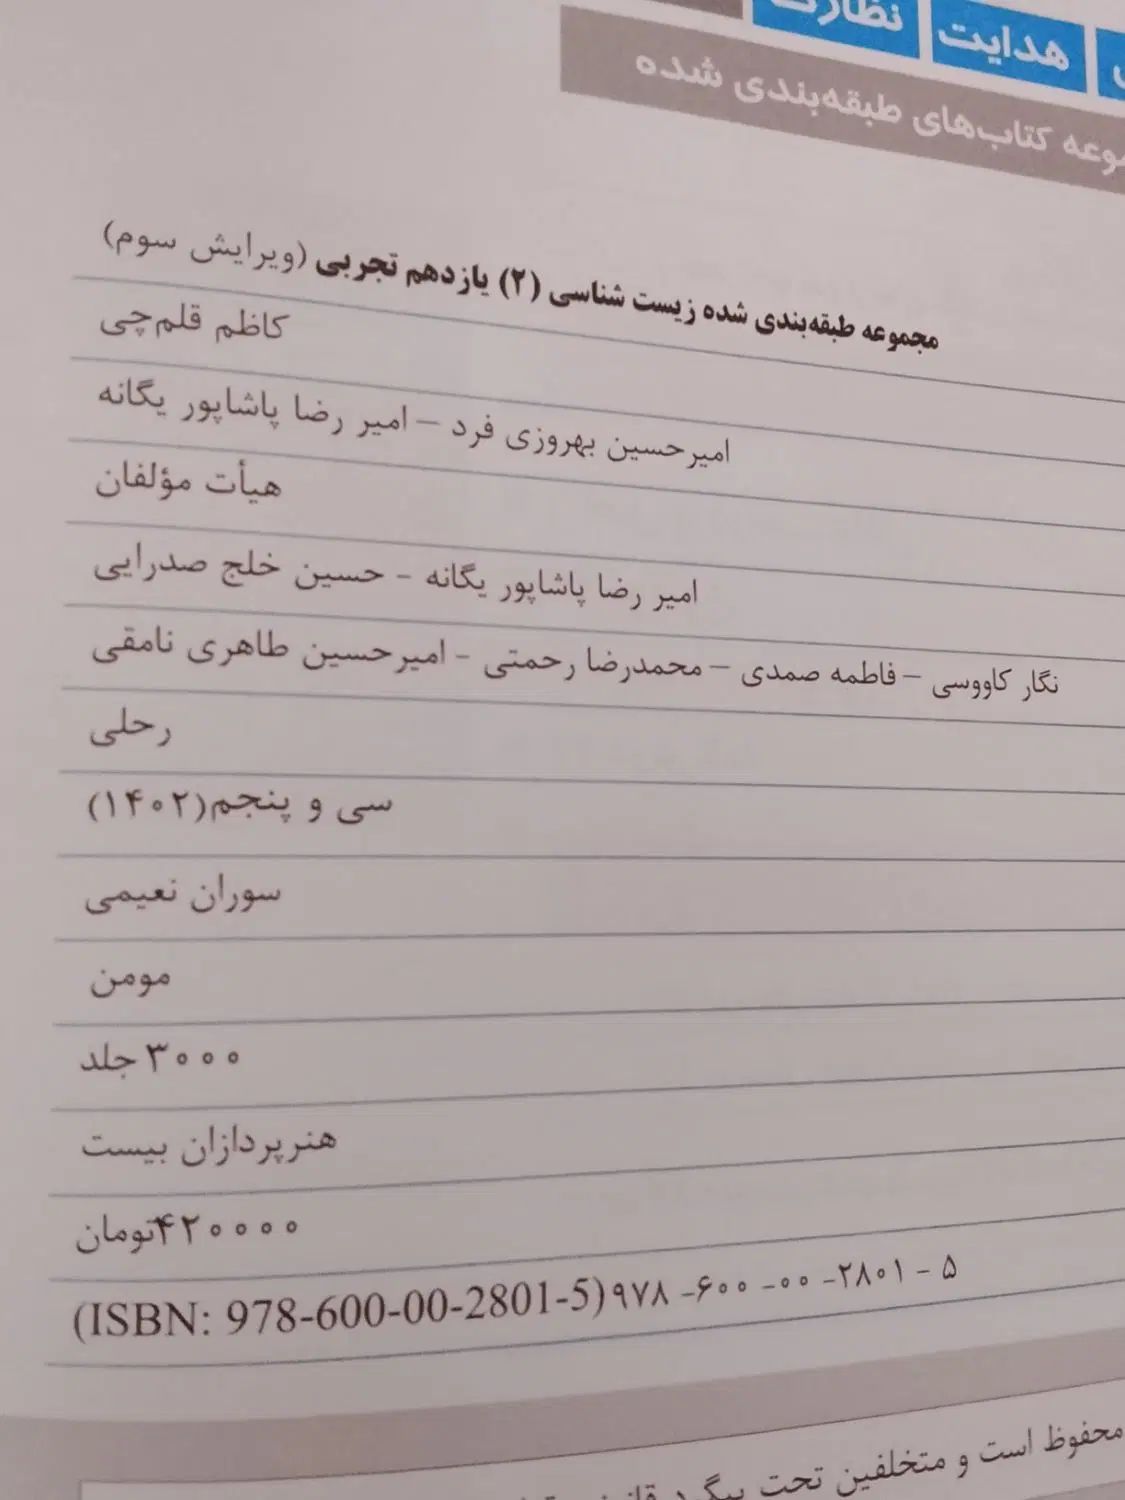 هدایت نظارت
کتاب‌های طبقه‌بندی شده
مجموعه طبقه‌بندی شده زیست شناسی (۲) یازدهم تجربی (ویرایش سوم)
کاظم قلم‌چی
امیرحسین بهروزی فرد – امیر رضا پاشاپور یگانه
هیأت مؤلفان
امیر رضا پاشاپور یگانه - حسین خلج صدرایی
نگار کاووسی – فاطمه صمدی – محمدرضا رحمتی - امیرحسین طاهری نامقی
رحلی
سی و پنجم(۱۴۰۲)
سوران نعیمی
مومن
۳۰۰۰ جلد
هنرپردازان بیست
۴۲۰۰۰۰تومان
(ISBN: 978-600-00-2801-5) ۹۷۸ -۶۰۰ -۰۰ -۲۸۰۱ - ۵
محفوظ است و متخلفین تحت پیگرد